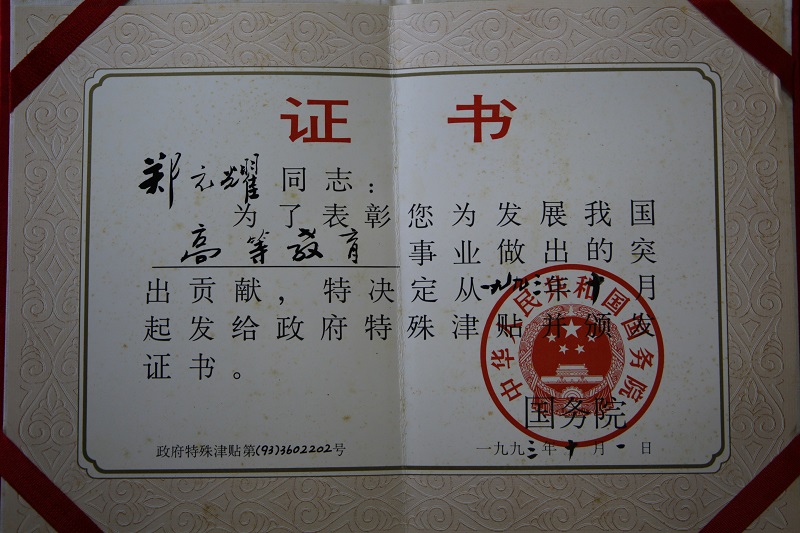 证书
郑元耀同志：
为了表彰您为发展我国
高等教育事业做出的突
出贡献，特决定从一九九三年十月
起发给政府特殊津贴并颁发
证书。
中华人民共和国国务院
国务院
政府特殊津贴第(93)3602202号
一九九三年十月一日